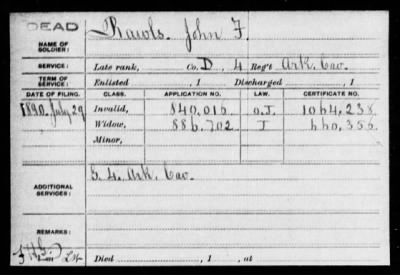 DEAD
NAME OF SOLDIER: Rawls. John F.
SERVICE: Late rank, Co. D, 4 Reg't Ark. Cav.
TERM OF SERVICE: Enlisted , 1 Discharged , 1
DATE OF FILING. CLASS. APPLICATION NO. LAW. CERTIFICATE NO.
1890. July 29 Invalid, 840,016 O.I. 1064,238
Widow, 886,702 I
Minor,
ADDITIONAL SERVICES: G. 4. Ark. Cav.
REMARKS:
Died , 1 , at